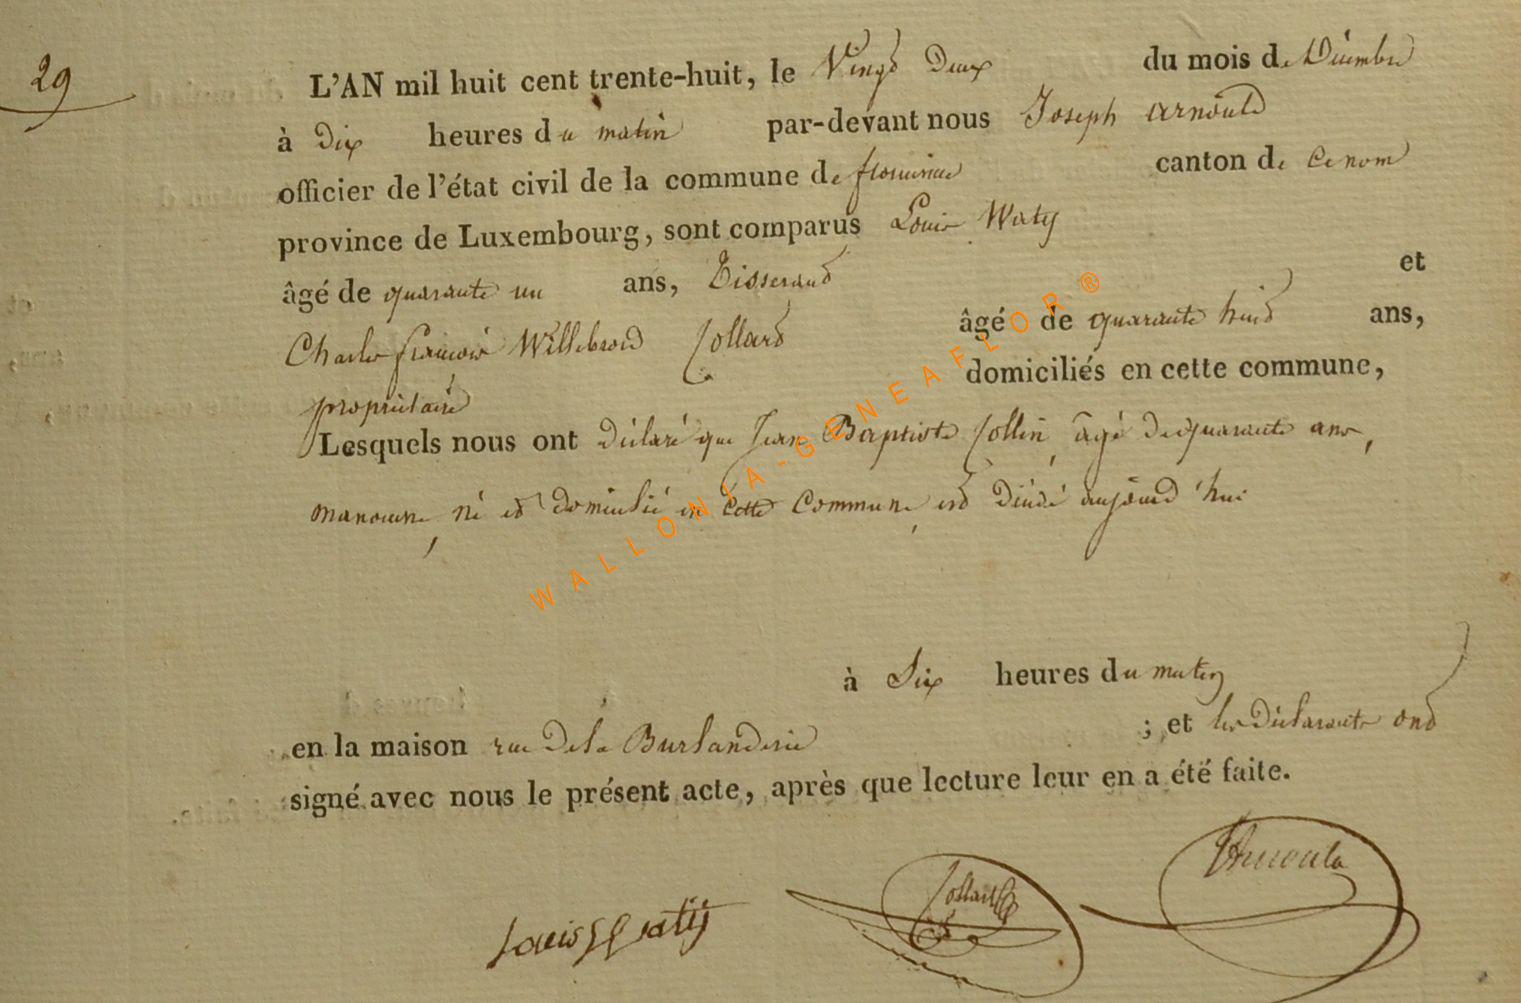 29
L'AN mil huit cent trente-huit, le Vingt Deux du mois de Décembre
à Dix heures du matin par-devant nous Joseph Arnould
officier de l'état civil de la commune de florenville canton de Ce nom
province de Luxembourg, sont comparus Louis Waty
âgé de quarante un ans, Tisserand et
Charles françois Willebrord Collard âgé de quarante huit ans,
propriétaire domiciliés en cette commune,
Lesquels nous ont Déclaré que Jean Baptiste Collin, âgé de quarante ans,
manœuvre, né et domicilié en Cette Commune, est Décédé aujourd'hui
à Six heures du matin
en la maison rue De la Burlanderie ; et les Déclarants ont
signé avec nous le présent acte, après que lecture leur en a été faite.
Louis Watij Collard Arnould
WALLONIA-GENEAFLOR®